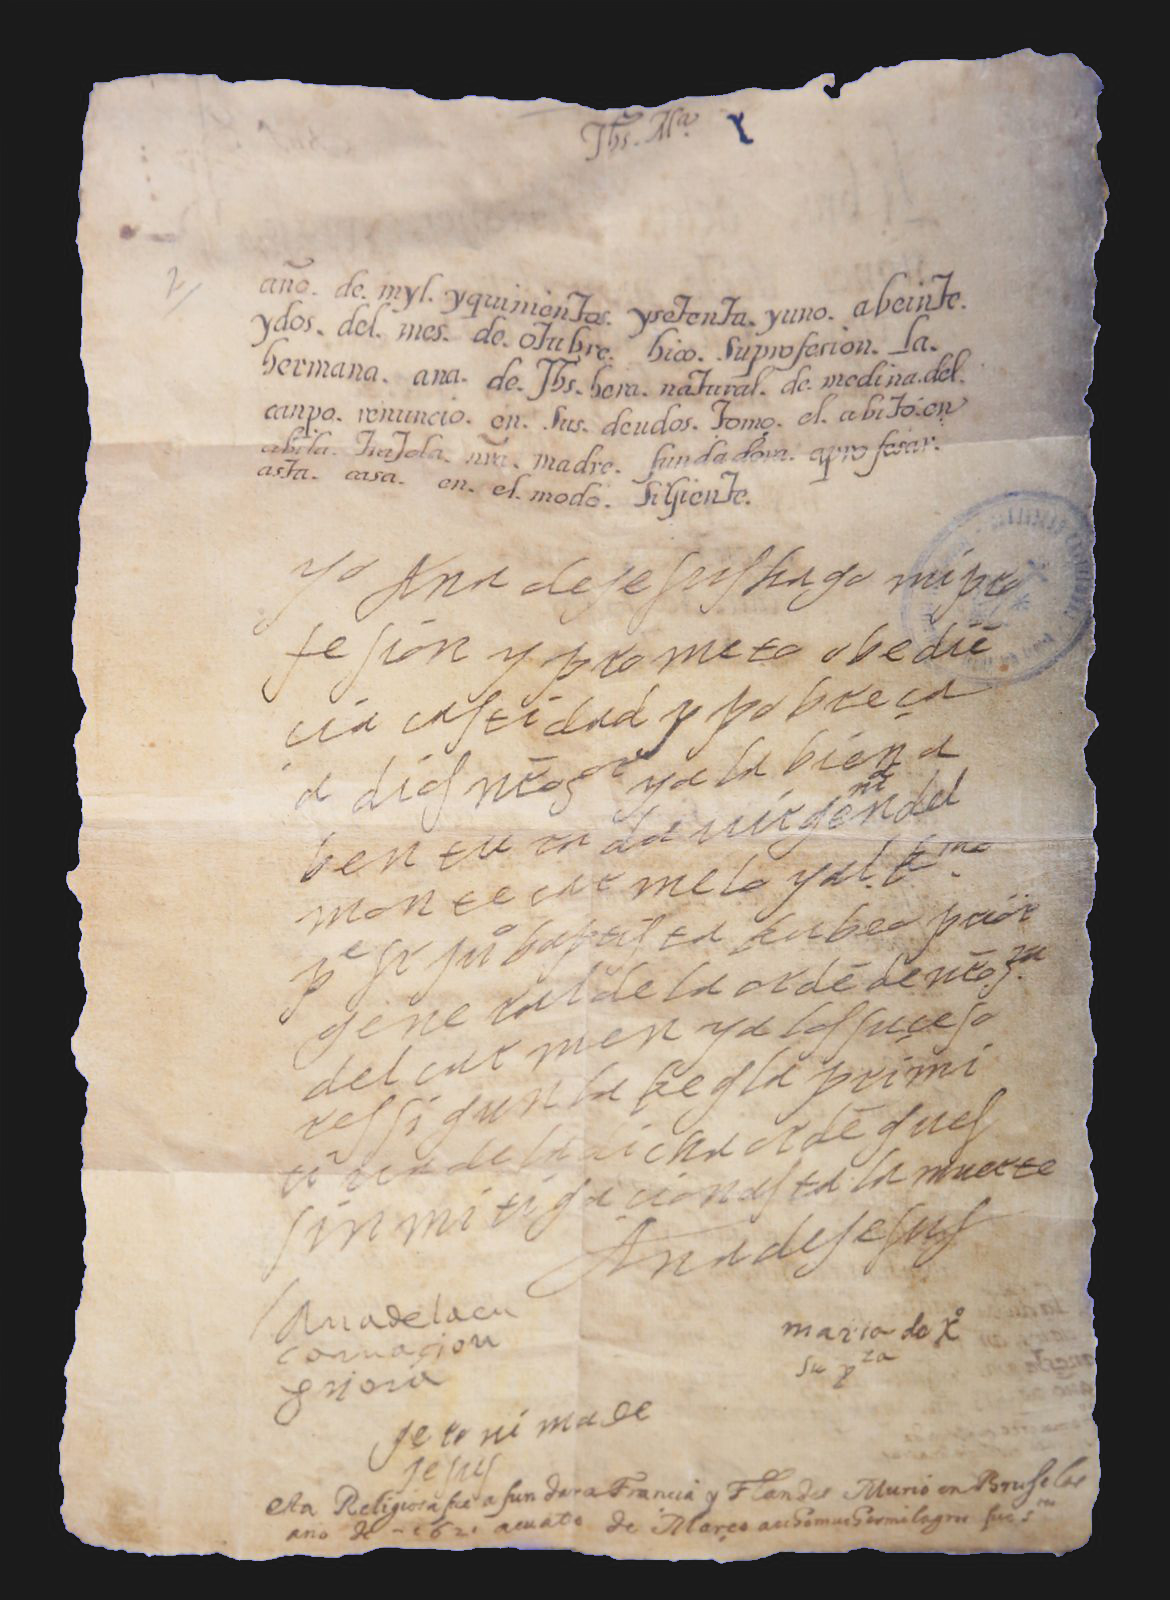 Jhs. Mª
año. de. myl. yquinientos. ysetenta. yuno. abeinte.
ydos. del. mes. de. otubre. hiço. suprofesion. la.
hermana. ana. de. Jhs. hera. natural. de. medina. del.
canpo. renuncio. en. sus. deudos. tomo. el. abito. en
abila. trajola. nrã. madre. fundadora. aprofesar.
asta. casa. en. el. modo. sigiente.
yo Ana de jesus hago mi pro
fesion y prometo obediē
cia castidad y pobreça
a dios nrõ sor y a la biena
benturada uirgen nrã del
monte carmelo y al Rmo
pe fr juº baptista Rubeo prior
general de la ordē de nrã sra
del carmen y a los suçeso
res sigun la Regla primi
tiua de la dicha ordē ques
sin mitigacion asta la muerte
Ana de jesus
Ana de la en
carnaçion
priora
maria de Xº
su pra
jeronima de
jesus
esta Religiosa fue a fundar a Francia y Flandes Murio en Bruselas
ano de 1621 acuatº de Março